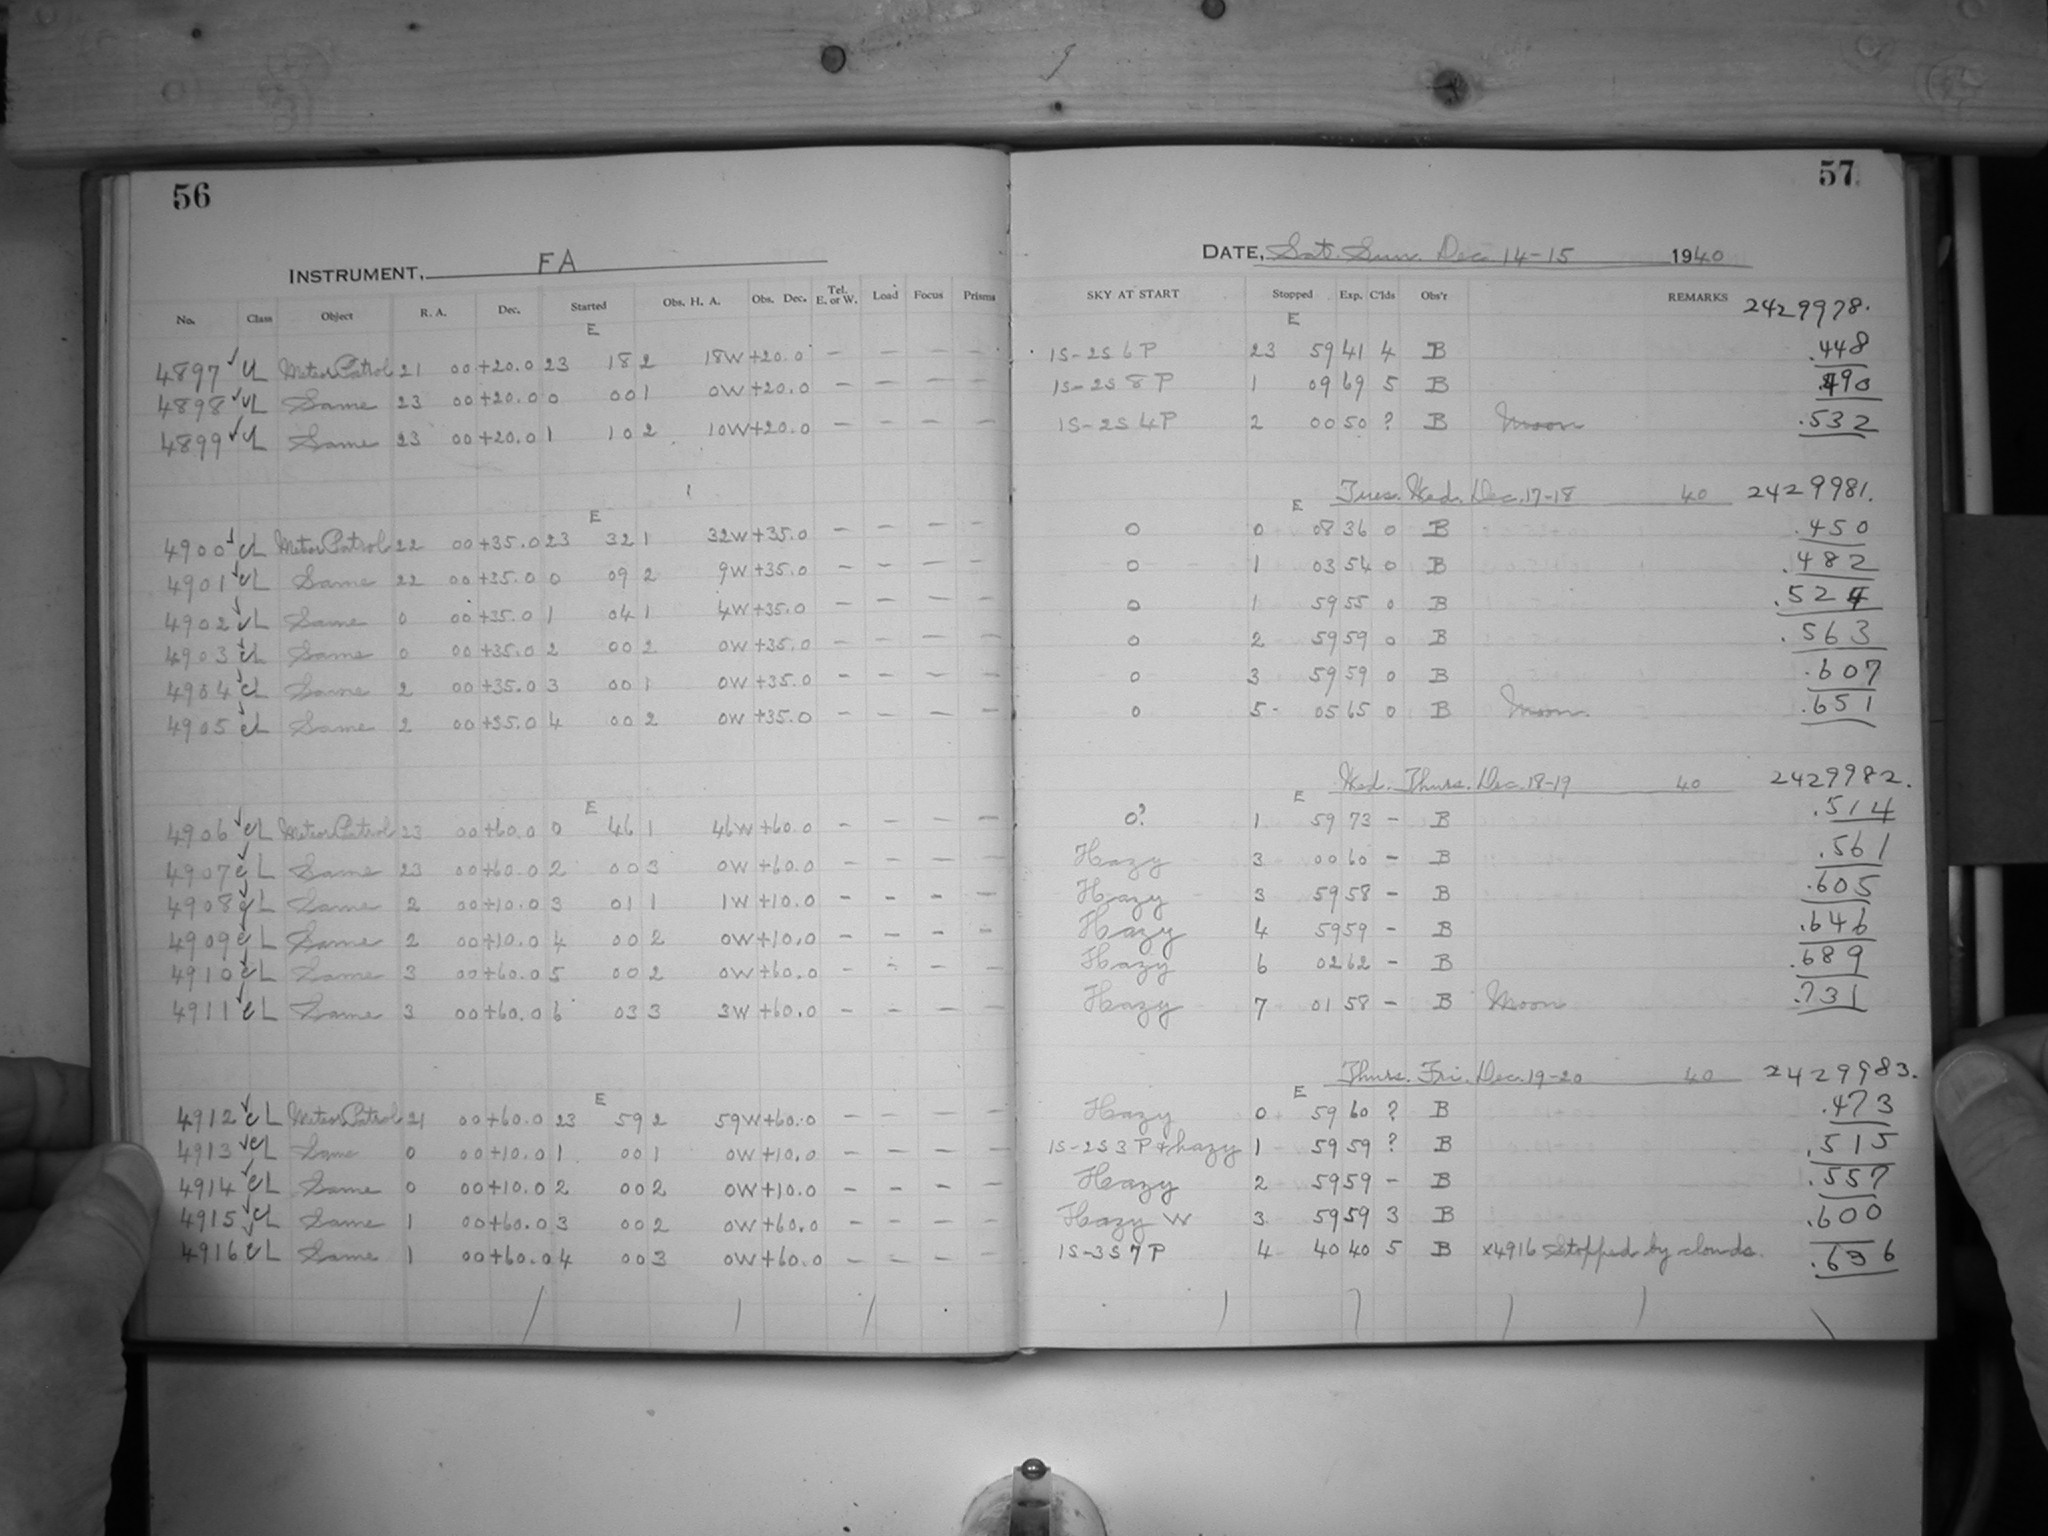 56
INSTRUMENT, FA
No. Class Object R. A. Dec. Started Obs. H. A. Obs. Dec. Tel. E. or W. Load Focus Prisms
E
4897 cL Meteor Patrol 21 00 +20.0 23 18 2 18W +20.0 - - - -
4898 cL Same 23 00 +20.0 0 00 1 0W +20.0 - - - -
4899 cL Same 23 00 +20.0 1 10 2 10W +20.0 - - - -
E
4900 cL Meteor Patrol 22 00 +35.0 23 32 1 32W +35.0 - - - -
4901 cL Same 22 00 +35.0 0 09 2 9W +35.0 - - - -
4902 cL Same 0 00 +35.0 1 04 1 4W +35.0 - - - -
4903 cL Same 0 00 +35.0 2 00 2 0W +35.0 - - - -
4904 cL Same 2 00 +35.0 3 00 1 0W +35.0 - - - -
4905 cL Same 2 00 +35.0 4 00 2 0W +35.0 - - - -
E
4906 cL Meteor Patrol 23 00 +60.0 0 46 1 46W +60.0 - - - -
4907 cL Same 23 00 +60.0 2 00 3 0W +60.0 - - - -
4908 cL Same 2 00 +10.0 3 01 1 1W +10.0 - - - -
4909 cL Same 2 00 +10.0 4 00 2 0W +10.0 - - - -
4910 cL Same 3 00 +60.0 5 00 2 0W +60.0 - - - -
4911 cL Same 3 00 +60.0 6 03 3 3W +60.0 - - - -
E
4912 cL Meteor Patrol 21 00 +60.0 23 59 2 59W +60.0 - - - -
4913 cL Same 0 00 +10.0 1 00 1 0W +10.0 - - - -
4914 cL Same 0 00 +10.0 2 00 2 0W +10.0 - - - -
4915 cL Same 1 00 +60.0 3 00 2 0W +60.0 - - - -
4916 cL Same 1 00 +60.0 4 00 3 0W +60.0 - - - -
57
DATE, Sat. Sun. Dec. 14-15 1940
SKY AT START Stopped Exp. C'lds Obs'r REMARKS 2429978.
E
1S-2S 6P 23 59 41 4 B .448
1S-2S 8P 1 09 69 5 B .490
1S-2S 4P 2 00 50 ? B Moon .532
E Tues. Wed. Dec. 17-18 40 2429981.
0 0 08 36 0 B .450
0 1 03 54 0 B .482
0 1 59 55 0 B .524
0 2 59 59 0 B .563
0 3 59 59 0 B .607
0 5 05 65 0 B Moon .651
E Wed. Thurs. Dec. 18-19 40 2429982.
0? 1 59 73 - B .514
Hazy 3 00 60 - B .561
Hazy 3 59 58 - B .605
Hazy 4 59 59 - B .646
Hazy 6 02 62 - B .689
Hazy 7 01 58 - B Moon .731
E Thurs. Fri. Dec. 19-20 40 2429983.
Hazy 0 59 60 ? B .473
1S-2S 3P + hazy 1 59 59 ? B .515
Hazy 2 59 59 - B .557
Hazy W 3 59 59 3 B .600
1S-3S 7P 4 40 40 5 B x4916 Stopped by clouds. .636